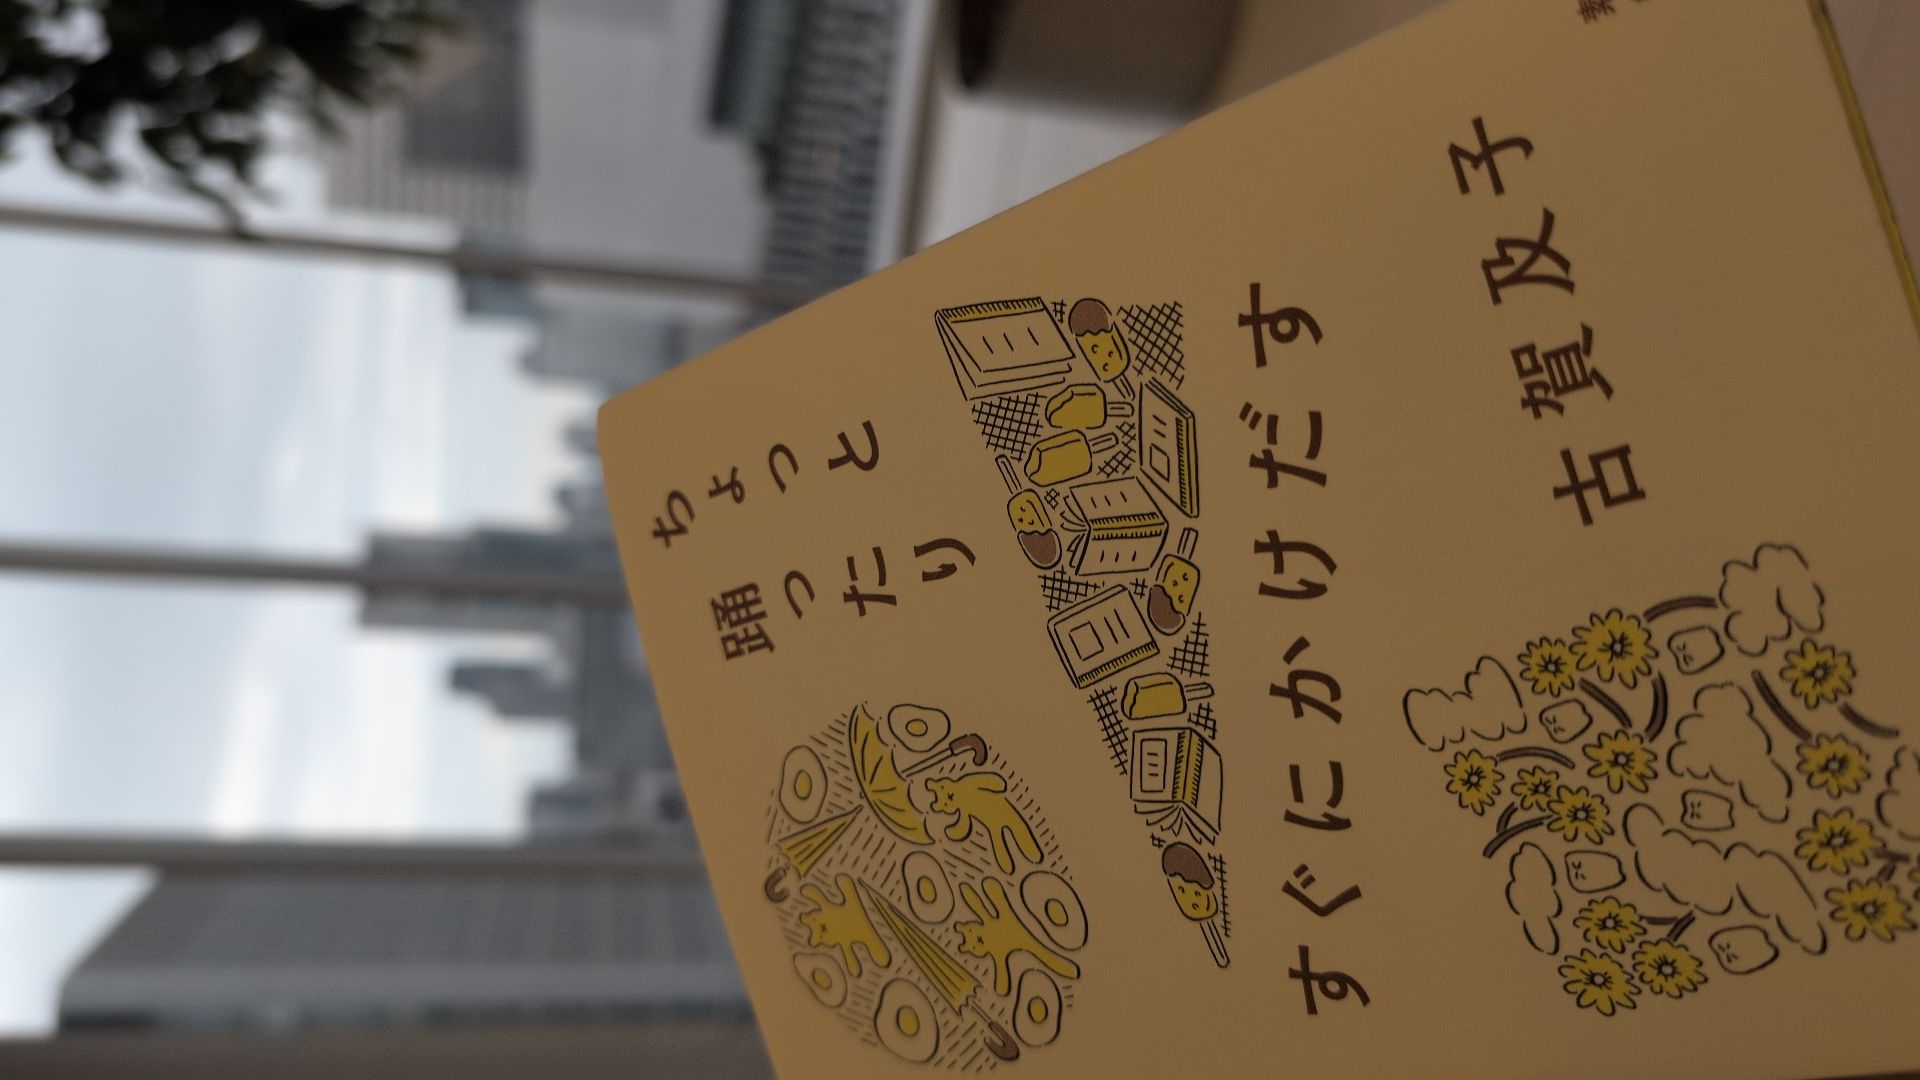 ちょっと
踊ったり
すぐにかけだす
古賀及子